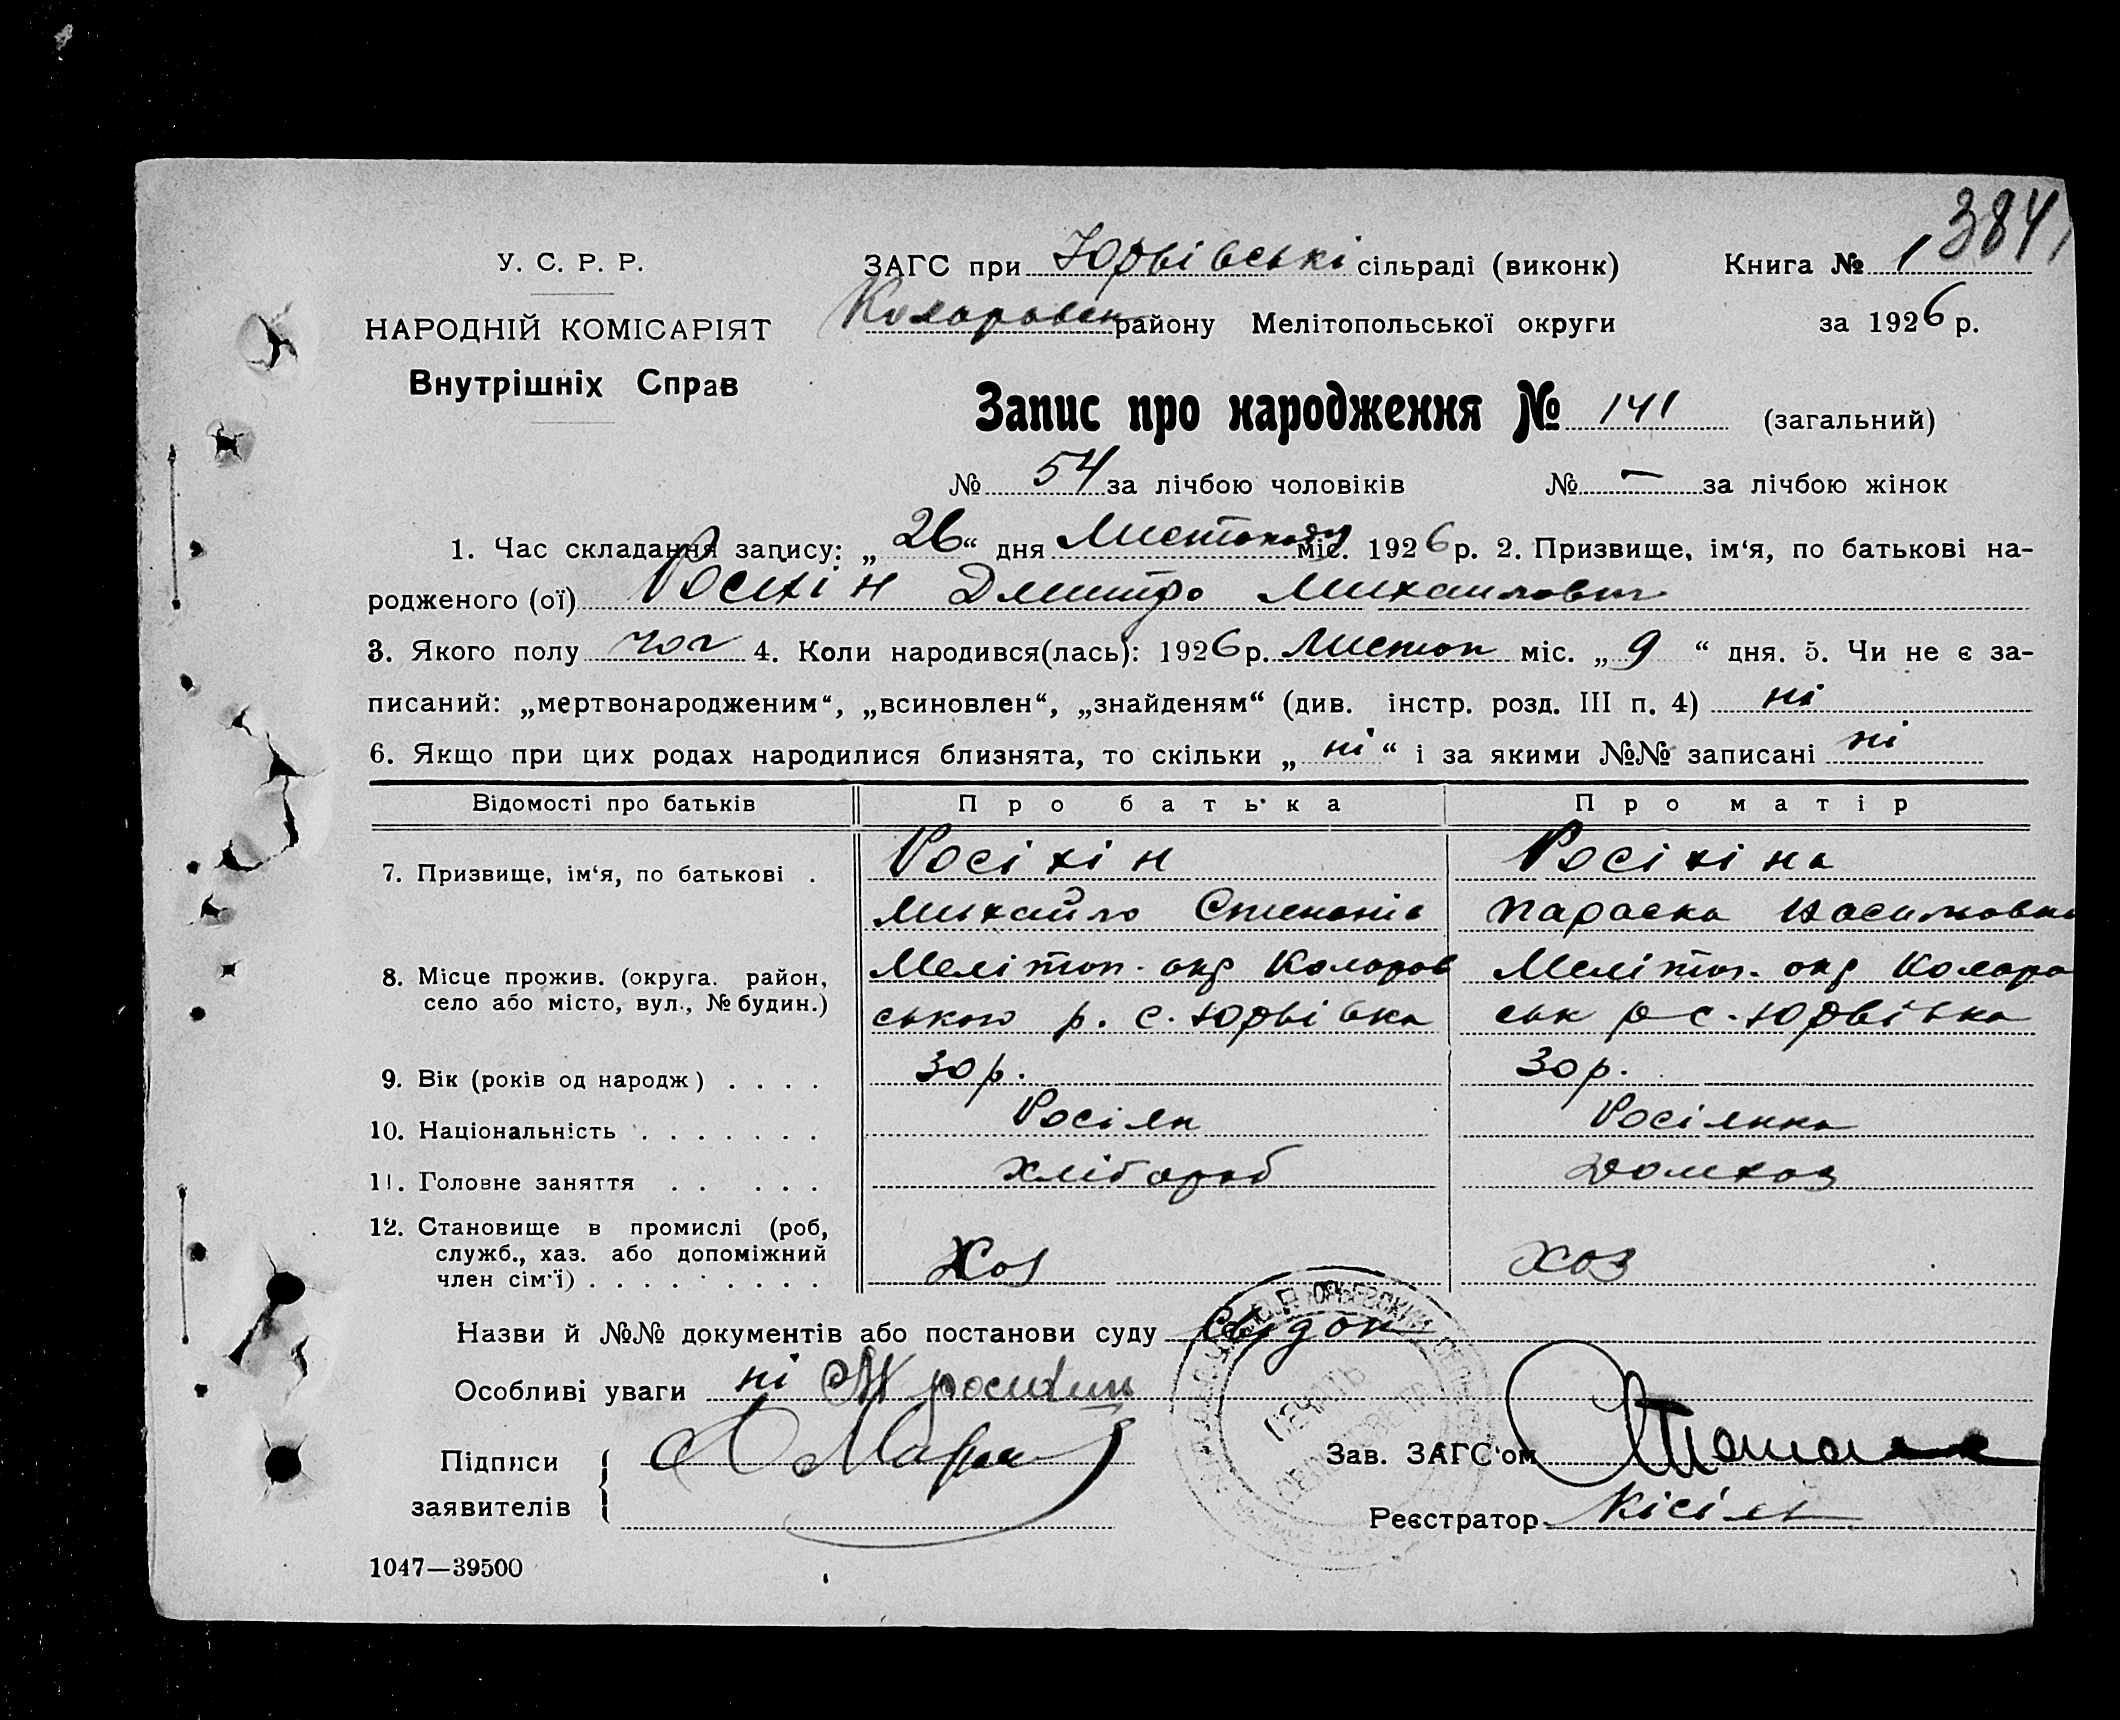 384
У. С. Р. Р.
НАРОДНІЙ КОМІСАРІЯТ
Внутрішніх Справ
ЗАГС при Юрвівські сільраді (виконк)
Книга № 1
Коларовськ району Мелітопольської округи
за 1926 р.
Запис про народження № 141 (загальний)
№ 54 за лічбою чоловіків № — за лічбою жінок
1. Час складання запису: „26“ дня Листопаду міс. 1926 р. 2. Призвище, ім‘я, по батькові на-
родженого (ої) Росихін Дмитро Михаилович
3. Якого полу чол 4. Коли народився(лась): 1926 р. Листоп міс. „9“ дня. 5. Чи не є за-
писаний: „мертвонародженим“, „всиновлен“, „знайденям“ (див. інстр. розд. III п. 4) ні
6. Якщо при цих родах народилися близнята, то скільки „ні“ і за якими №№ записані ні
Відомості про батьків Про батька Про матір
7. Призвище, ім‘я, по батькові . Росіхін Росіхіна
Михайло Степанів Параска
8. Місце прожив. (округа. район, Меліпоп. окр Коларов Меліпоп. окр Коларо
село або місто, вул., № будин.) ського р. с. Юрвівка ськ р с. Юрвівка
9. Вік (років од народж) . . . . 30 р. 30 р.
10. Національність . . . . . . . Росіян Росіянка
11. Головне заняття . . . . . Хлібороб Домхоз
12. Становище в промислі (роб,
служб., хаз. або допоміжний Хоз Хоз
член сім‘ї) . . . . . . . . .
Назви й №№ документів або постанови суду Свідок
Особливі уваги ні М росихин
Підписи
заявителів
Зав. ЗАГС‘ом
Реєстратор Кісіль
ПЕЧАТЬ
1047—39500